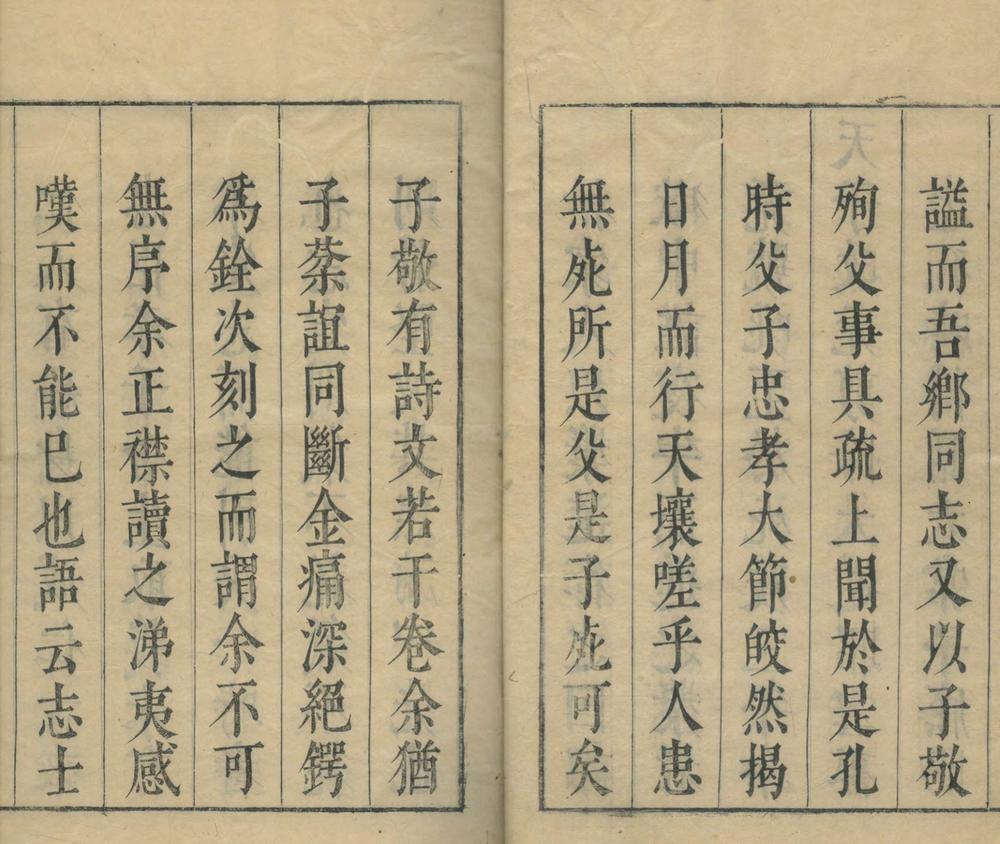 謚而吾鄉同志又以子敬
殉父事具疏上聞於是孔
時父子忠孝大節皎然揭
日月而行天壤嗟乎人患
無死所是父是子死可矣
子敬有詩文若干卷余猶
子棻誼同斷金痛深絕鍔
爲銓次刻之而謂余不可
無序余正襟讀之涕夷感
嘆而不能已也語云志士